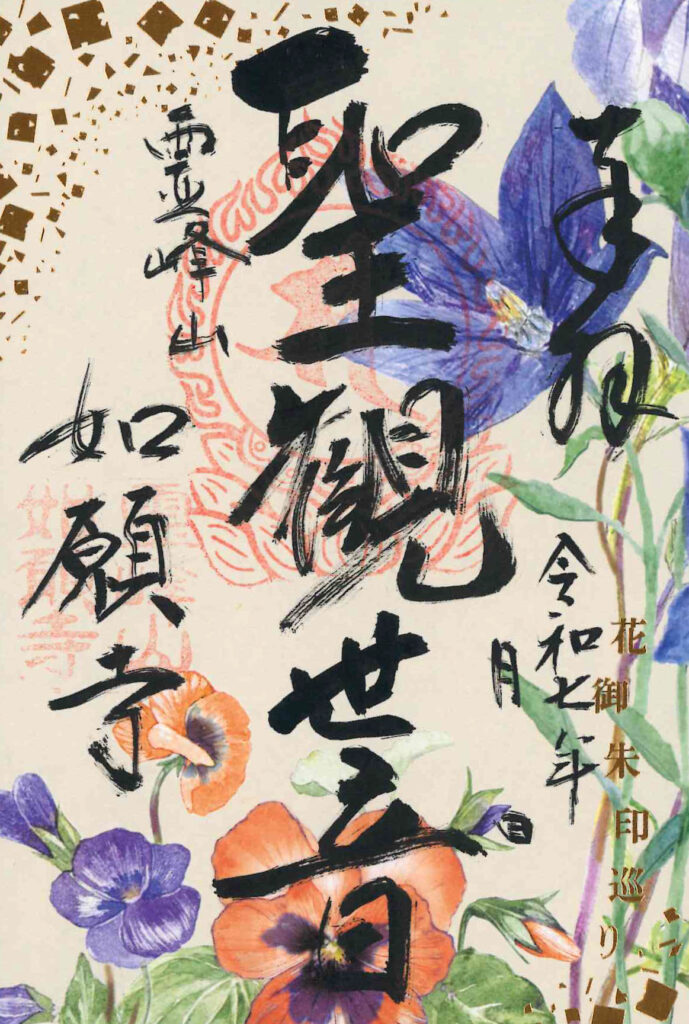 奉拝
令和七年
月 日
花御朱印巡り
聖観世音
霊峰山
如願寺